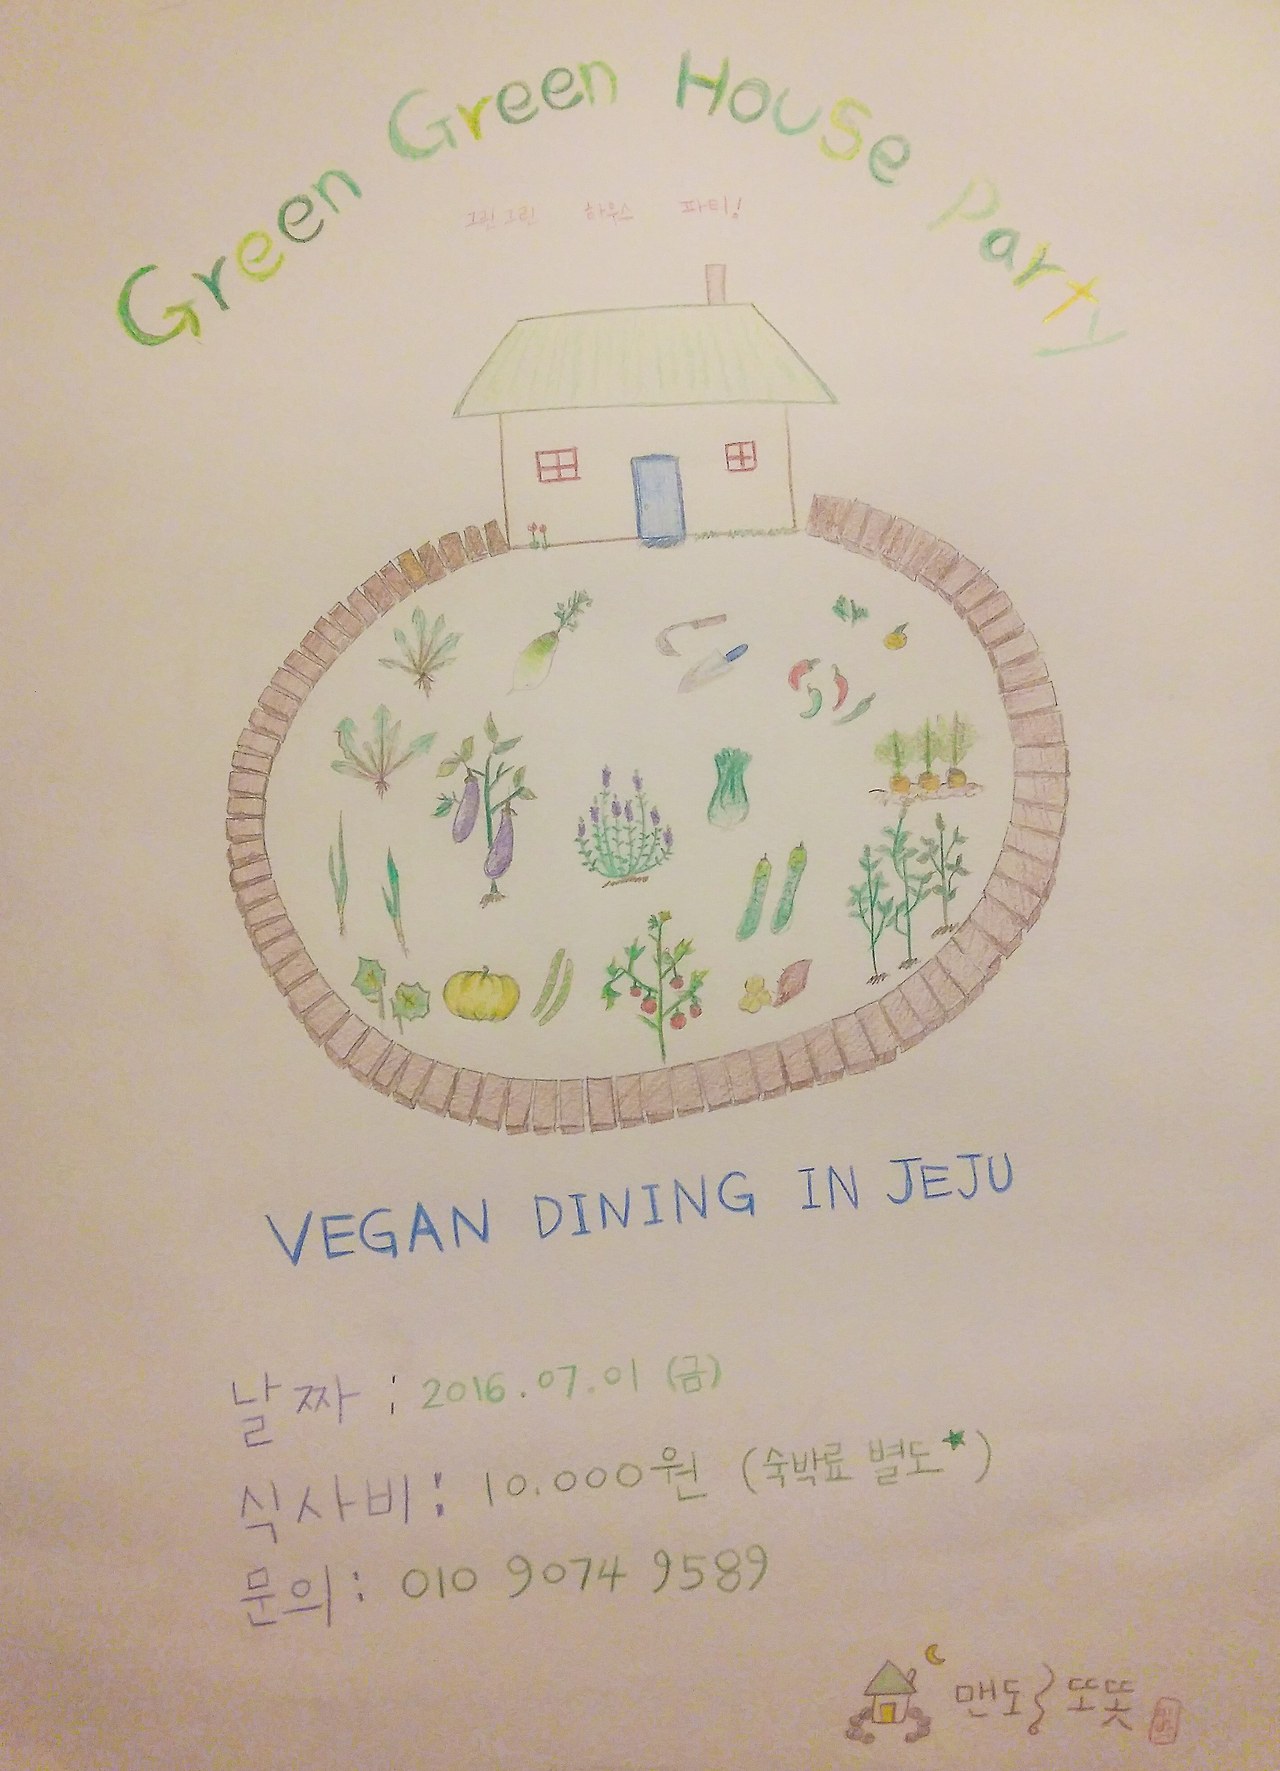 Green Green House Party
그린그린 하우스 파티!
VEGAN DINING IN JEJU
날짜 : 2016.07.01 (금)
식사비 : 10.000원 (숙박료 별도★)
문의 : 010 9074 9589
맨도롱 또똣